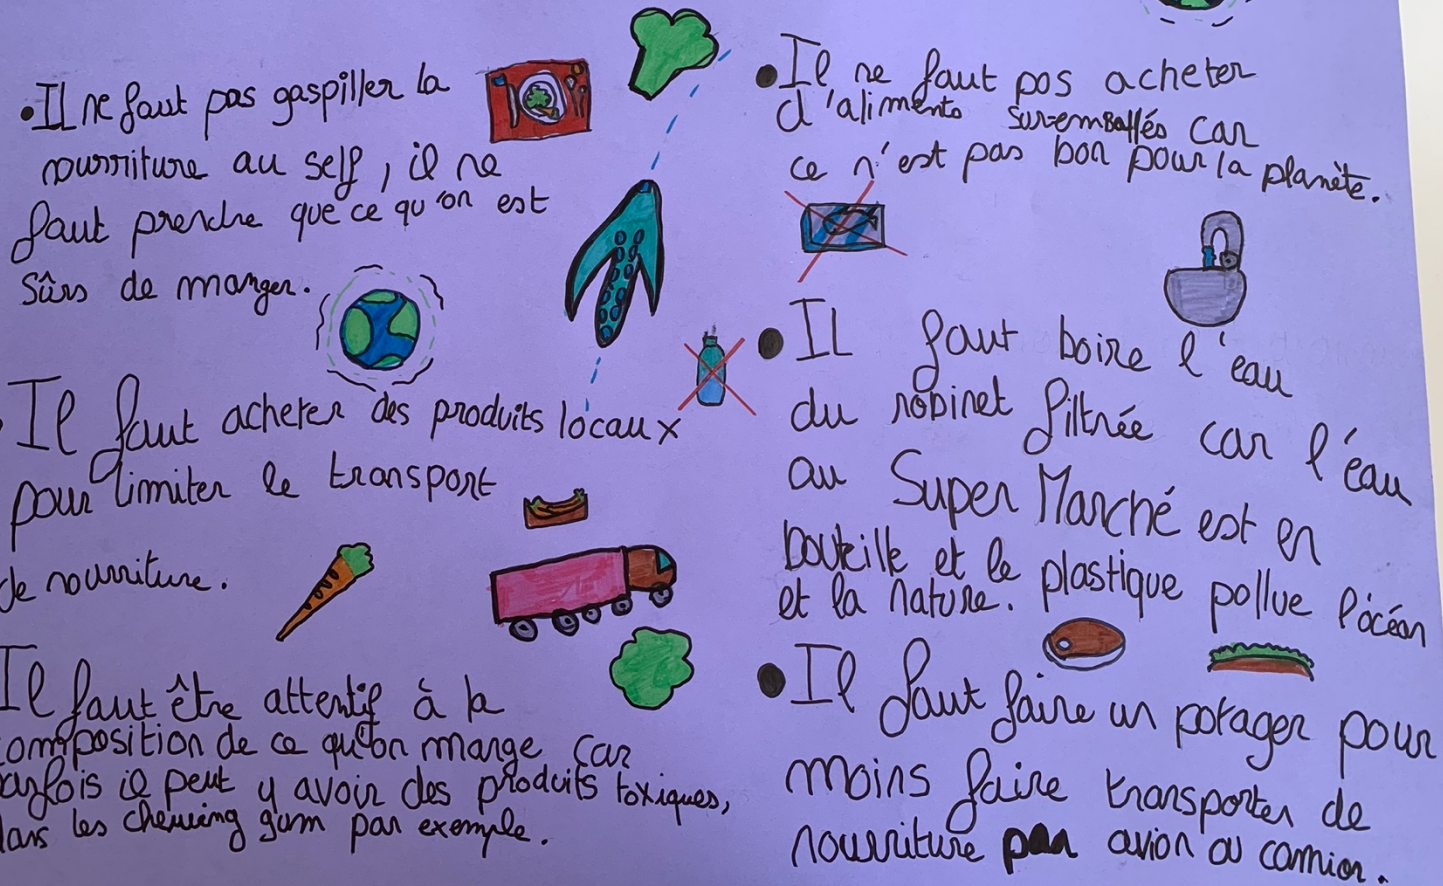 • Il ne faut pas gaspiller la
nourriture au self, il ne
faut prendre que ce qu'on est
sûrs de manger.
Il faut acheter des produits locaux
pour limiter le transport
de nourriture.
Il faut être attentif à la
composition de ce qu'on mange car
parfois il peut y avoir des produits toxiques,
dans les chewing gum par exemple.
• Il ne faut pas acheter
d'aliments sur-emballés car
ce n'est pas bon pour la planète.
• Il faut boire l'eau
du robinet filtrée car l'eau
au Super Marché est en
bouteille et le plastique pollue l'océan
et la nature.
• Il faut faire un potager pour
moins faire transporter de
nourriture par avion ou camion.